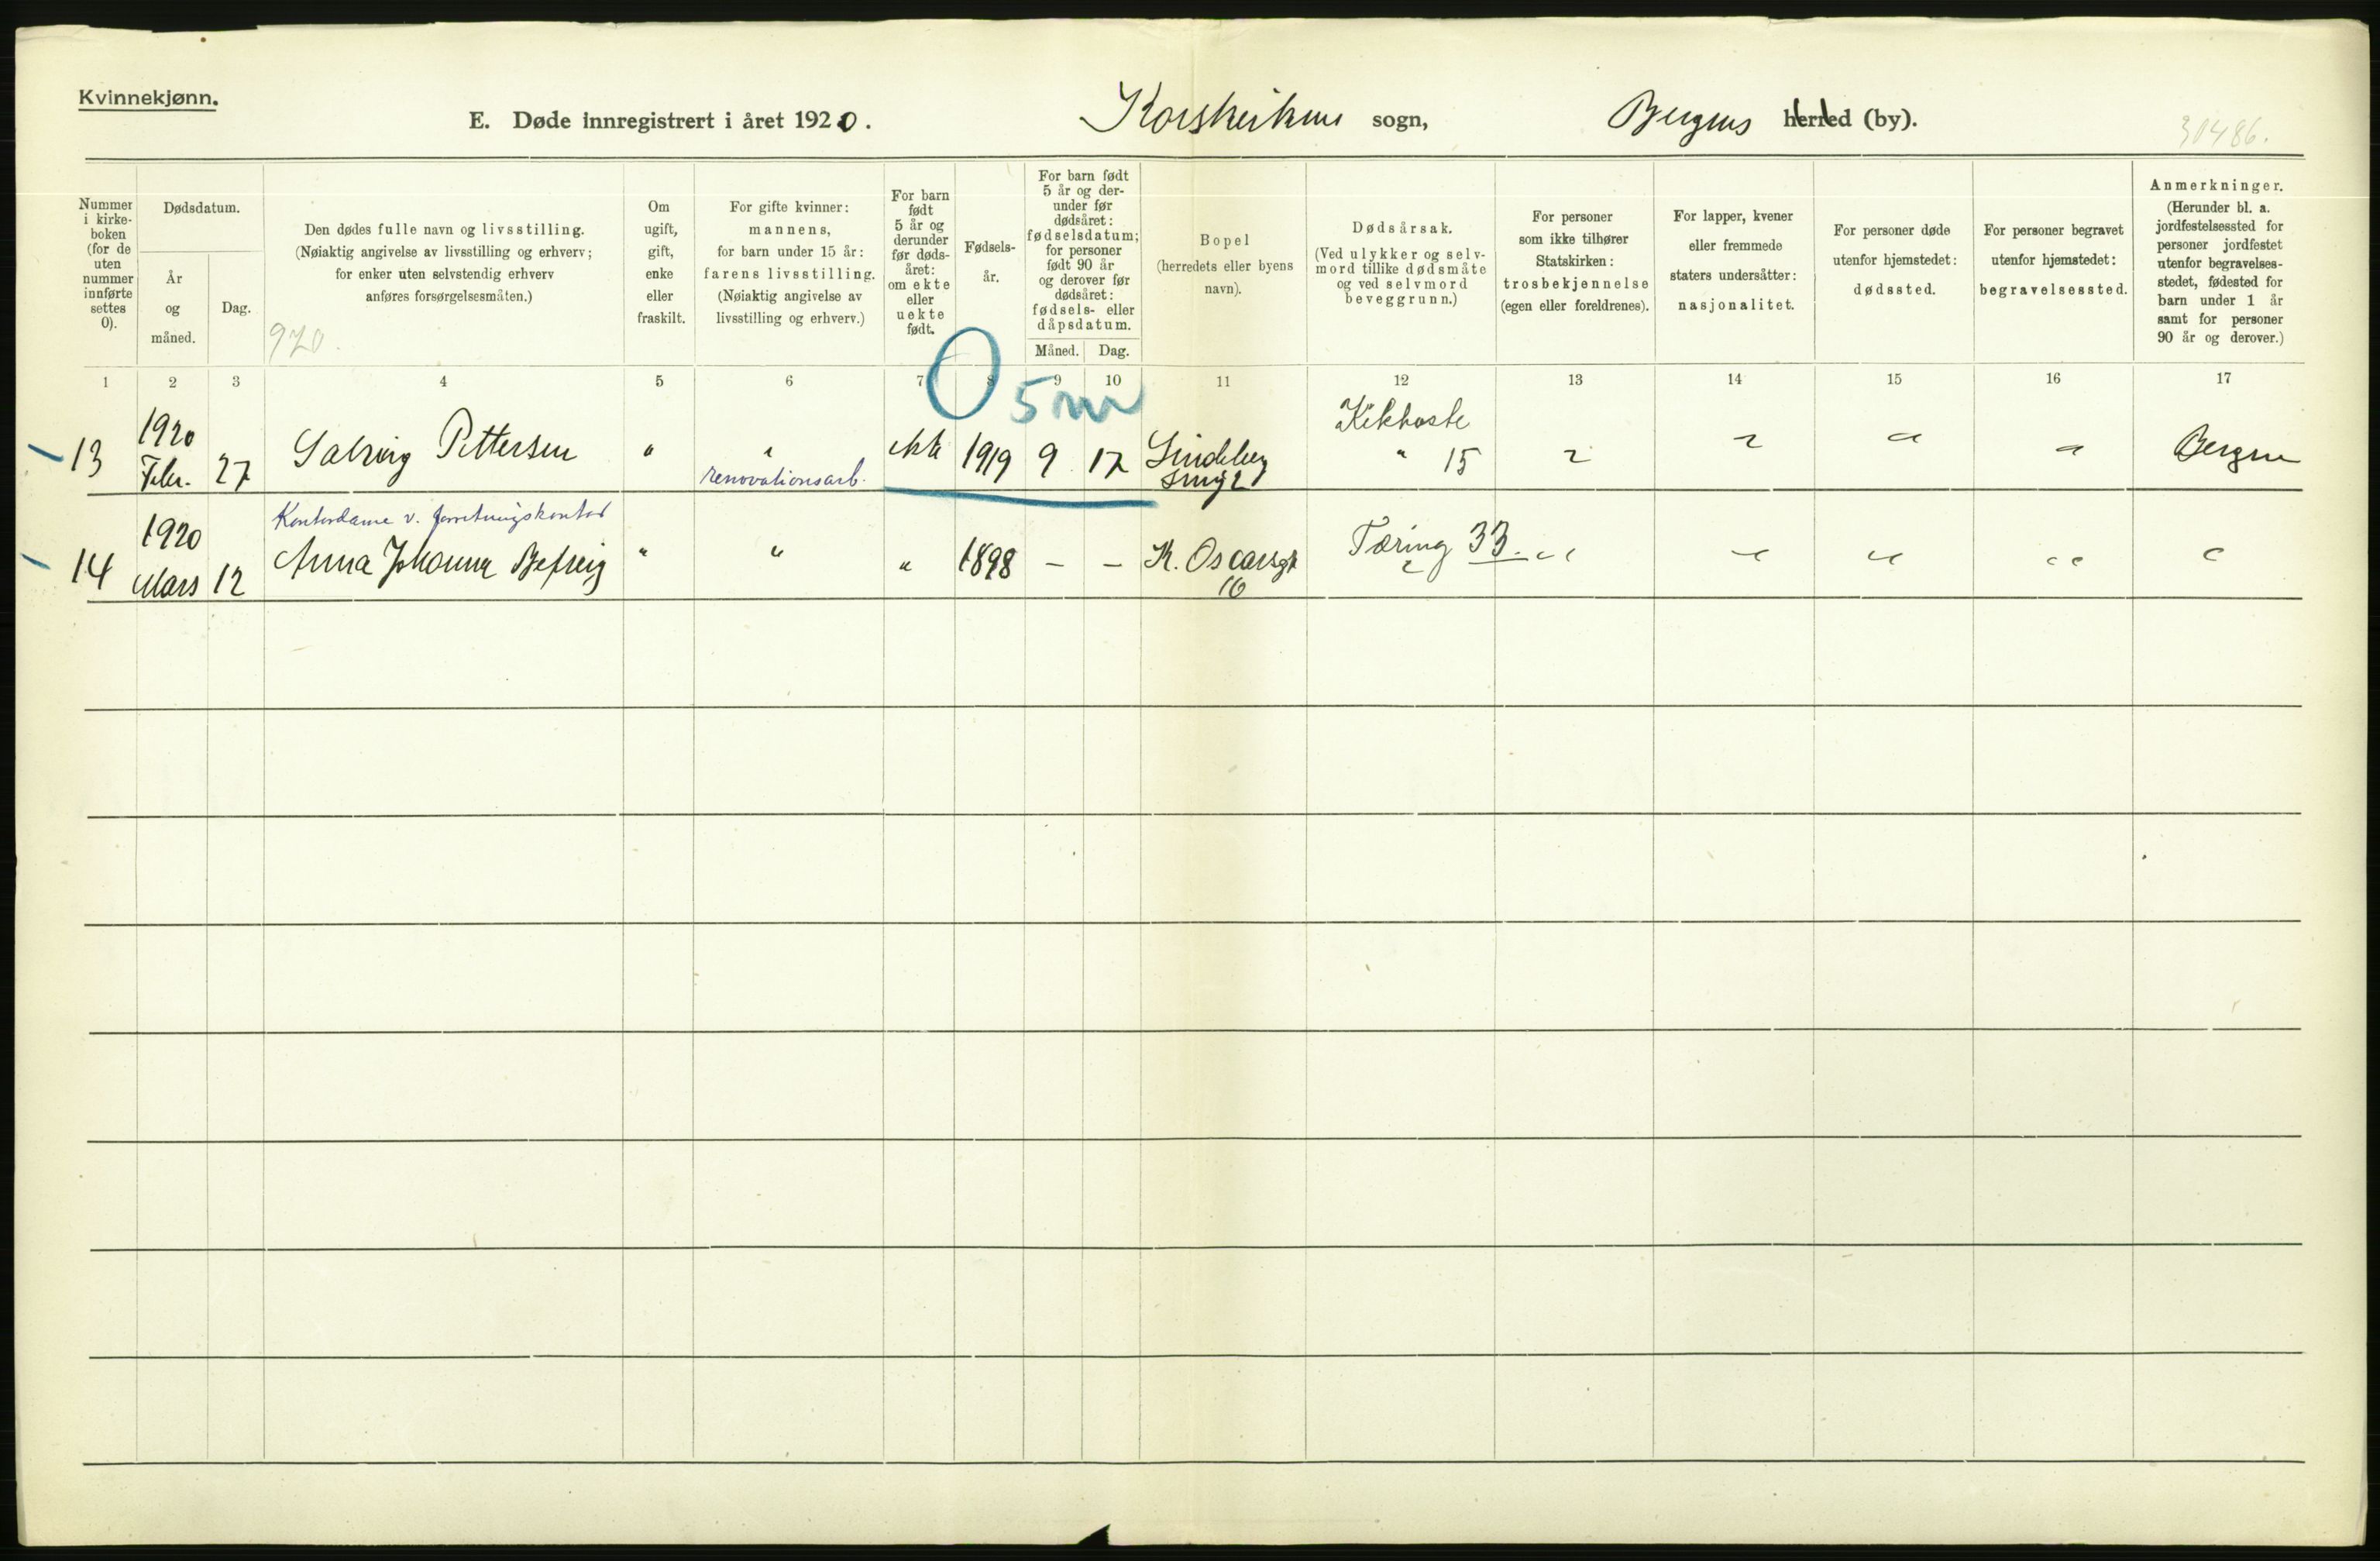 Kvinnekjønn.
E. Døde innregistrert i året 1920. Korskirkens sogn, Bergens herred (by).
30486.
Nummer i kirke- boken (for de uten nummer innførte settes 0).
Dødsdatum.
År og måned.
Dag.
Den dødes fulle navn og livsstilling.
(Nøiaktig angivelse av livsstilling og erhverv;
for enker uten selvstendig erhverv
anføres forsørgelsesmåten.)
920.
Om ugift, gift, enke eller fraskilt.
For gifte kvinner:
mannens,
for barn under 15 år:
farens livsstilling.
(Nøiaktig angivelse av
livsstilling og erhverv.)
For barn født 5 år og derunder før døds- året: om ekte eller uekte født.
Fødsels- år.
For barn født 5 år og der- under før dødsåret: fødselsdatum; for personer født 90 år og derover før dødsåret: fødsels- eller dåpsdatum.
Måned. Dag.
Bopel
(herredets eller byens
navn).
Dødsårsak.
(Ved ulykker og selv-
mord tillike dødsmåte
og ved selvmord
beveggrunn.)
For personer
som ikke tilhører
Statskirken:
trosbekjennelse
(egen eller foreldrenes).
For lapper, kvener
eller fremmede
staters undersåtter:
nasjonalitet.
For personer døde
utenfor hjemstedet:
dødssted.
For personer begravet
utenfor hjemstedet:
begravelsessted.
Anmerkninger.
(Herunder bl. a.
jordfestelsessted for
personer jordfestet
utenfor begravelses-
stedet, fødested for
barn under 1 år
samt for personer
90 år og derover.)
1 2 3 4 5 6 7 8 9 10 11 12 13 14 15 16 17
0 5 m
13 1920 Febr. 27 Solveig Pettersen " " renovationsarb. ekte 1919 9 17 Kikhoste " 15 Bergen
Kontordame v. forretningskontor
14 1920 Mars 12 Anna Johanna " " " 1898 - - K. Oscarsgt 16 Tæring 33 " " " " "